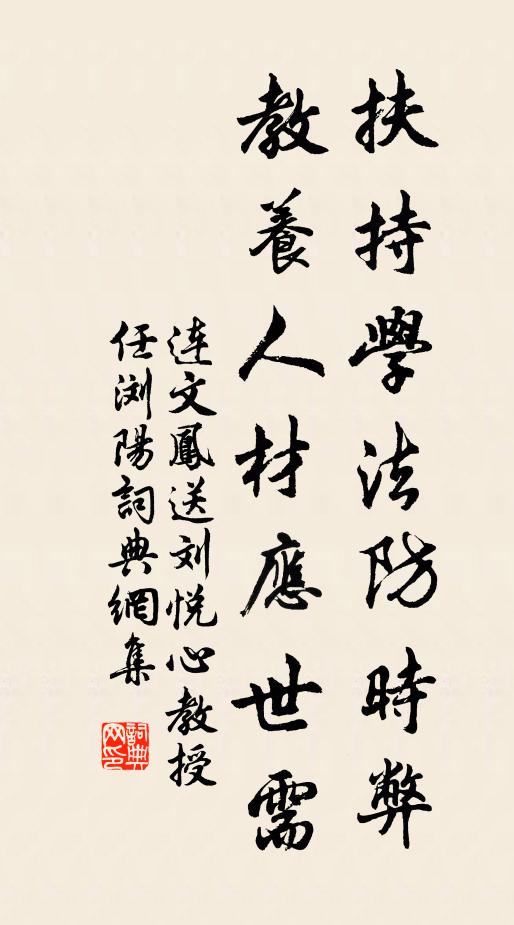 扶持學法防時弊
教養人材應世需
连文鳳送刘悦心教授
任浏陽詞典網集
詞典
网印